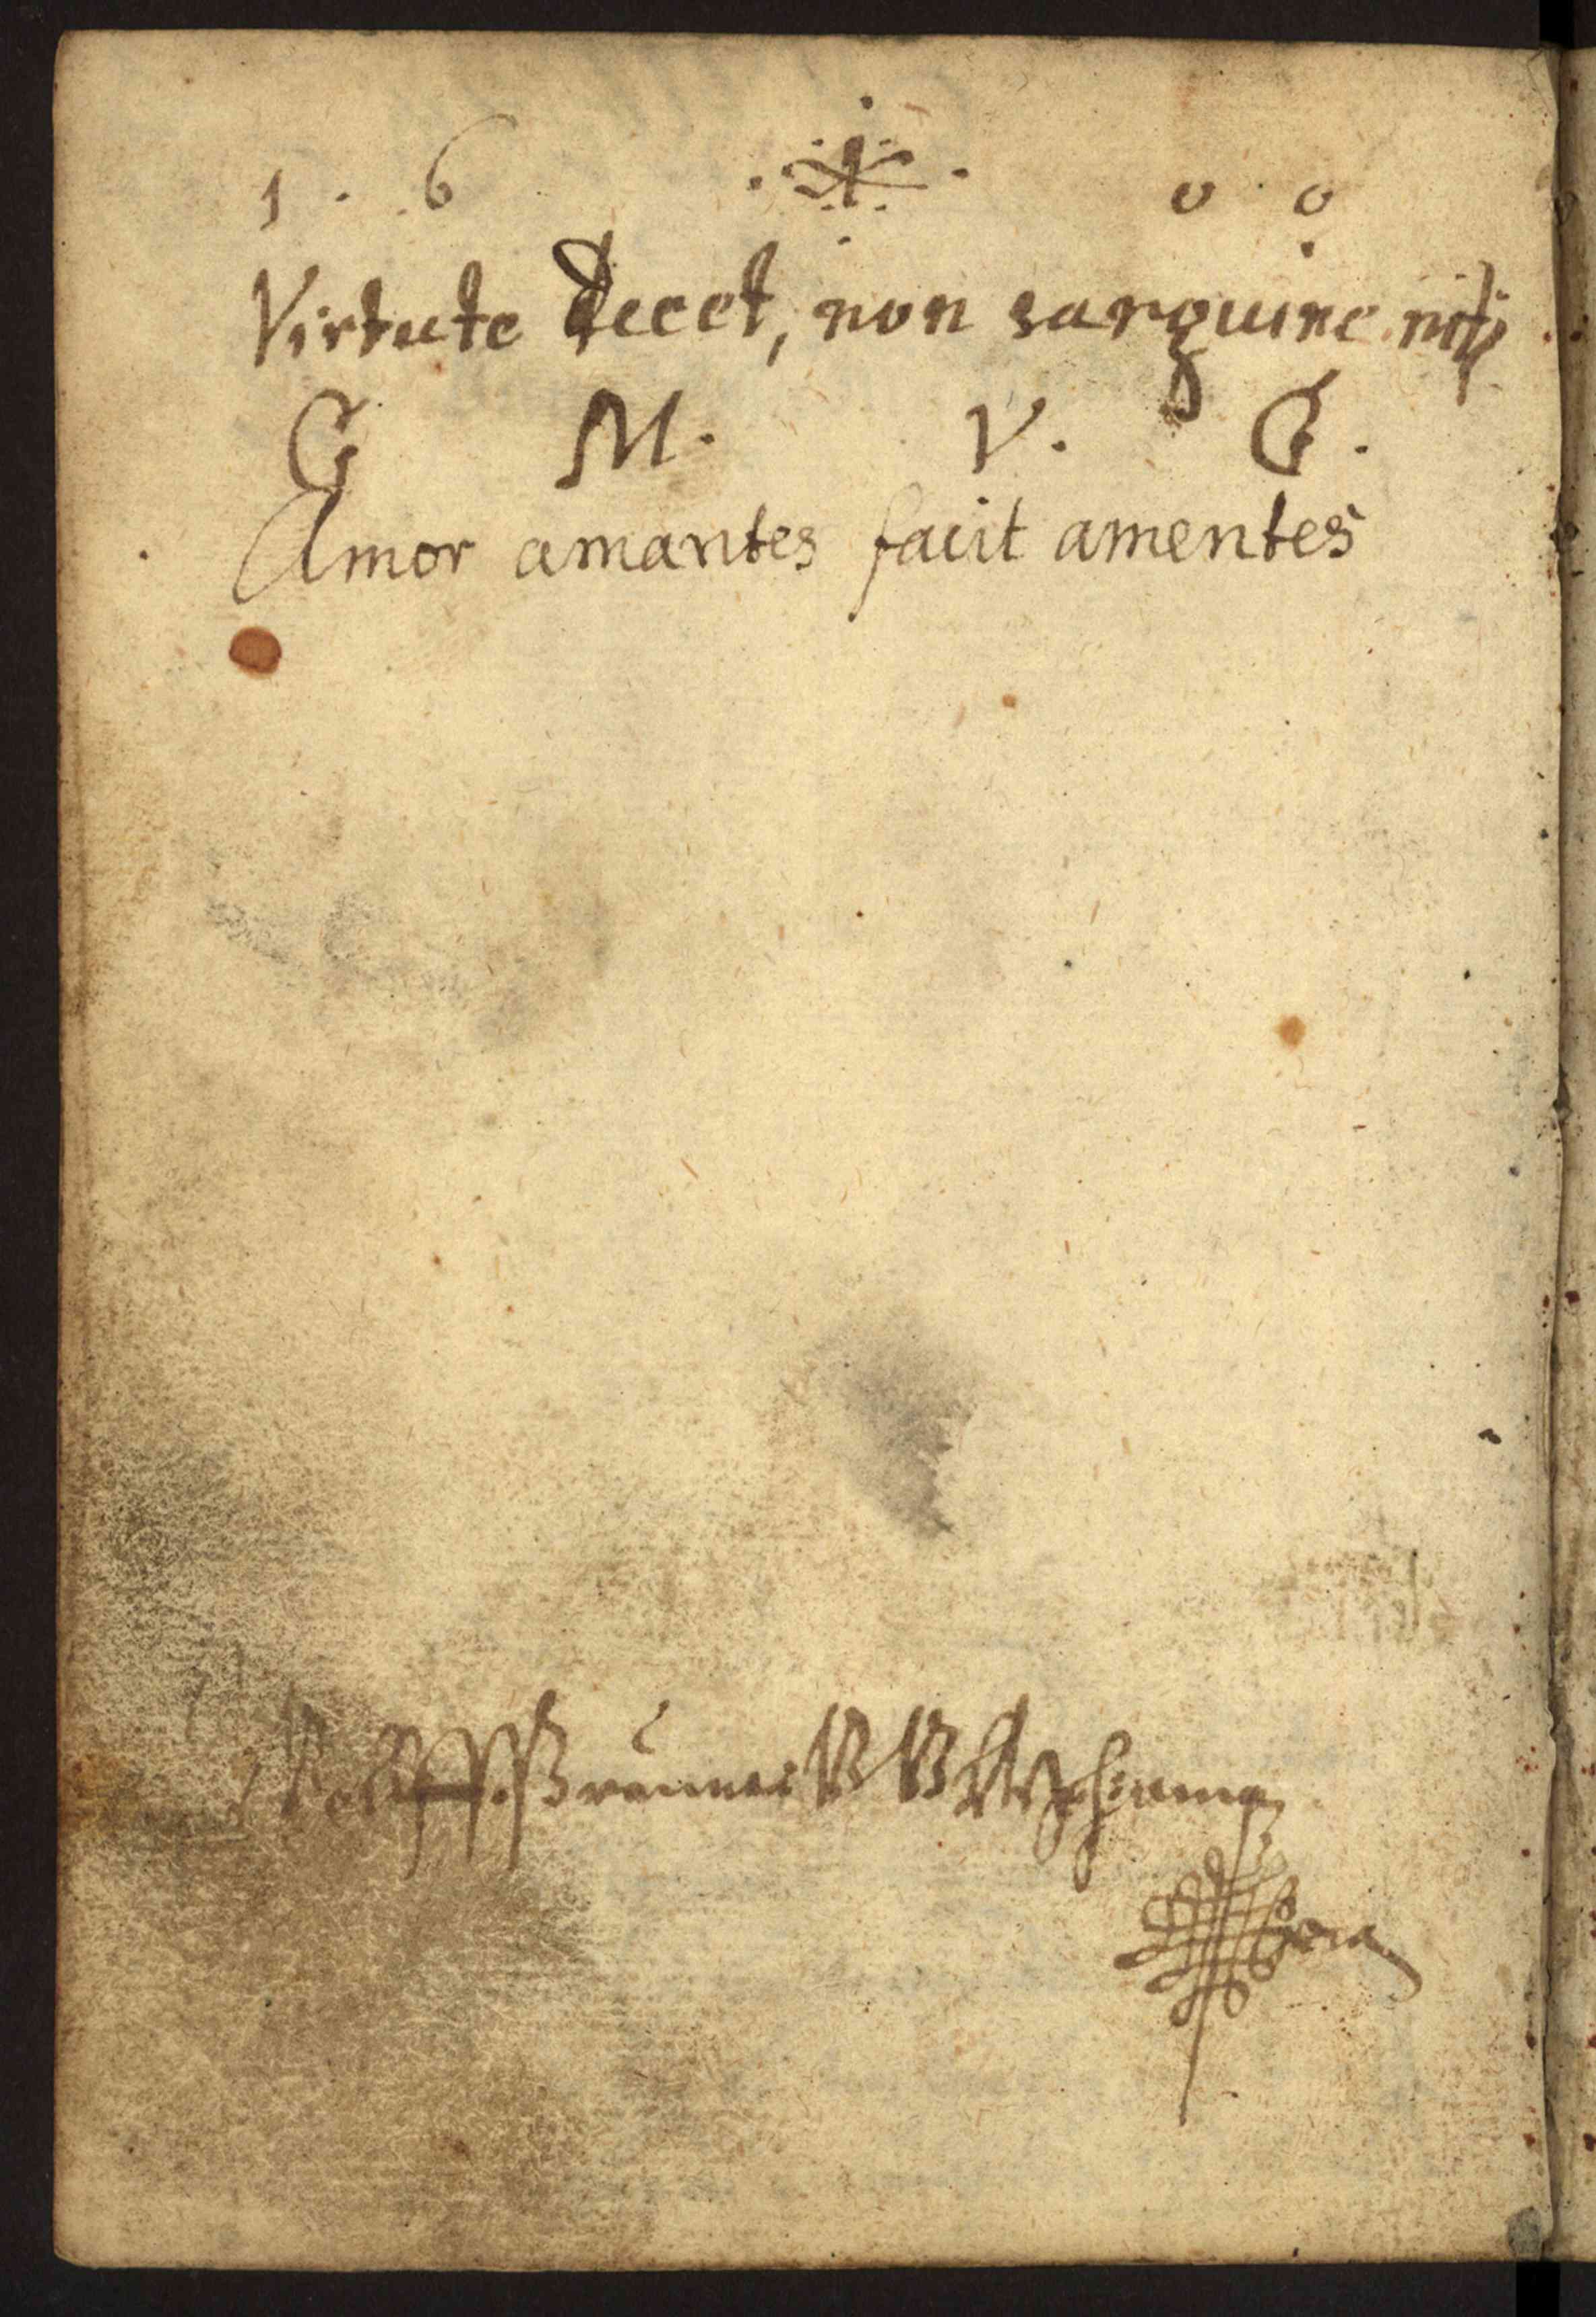 1 · 6 o · o
Virtute decet, non sanguine niti
G M. V. G.
Amor amantes facit amentes
Wolff